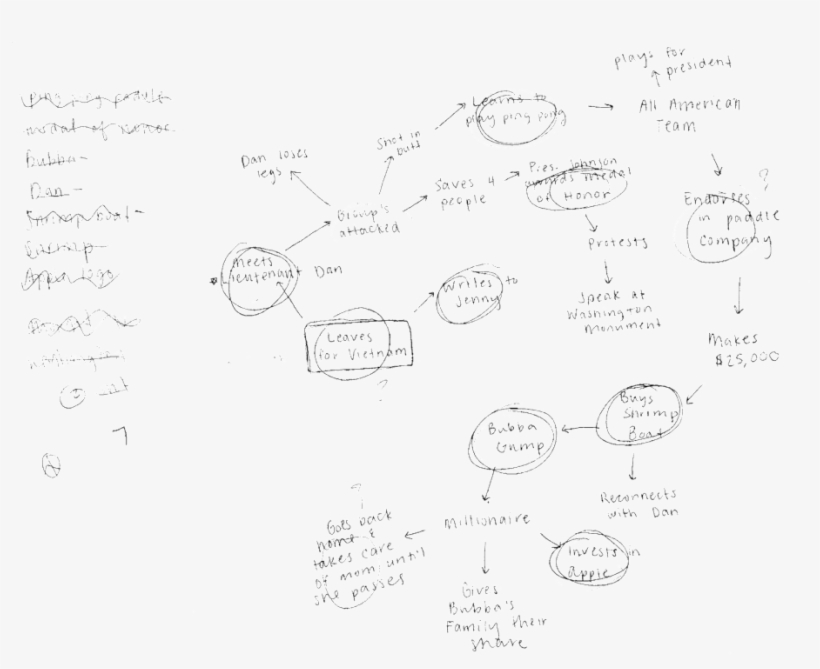 Bubba -
Dan -
Shrimp Boat -
plays for
president
Learns to
play ping pong
All American
Team
Shot in
butt
Dan loses
legs
Saves 4
people
Pres. Johnson
awards medal
of Honor
Endorses
in paddle
company
?
Group's
attacked
Protests
Meets
Lieutenant Dan
Writes to
Jenny
Speak at
Washington
Monument
Leaves
for Vietnam
?
Makes
$25,000
Buys
Shrimp
Boat
Bubba
Gump
Reconnects
with Dan
?
Goes back
home &
takes care
of mom, until
she passes
Millionaire
Invests in
Apple
Gives
Bubba's
Family their
share
7